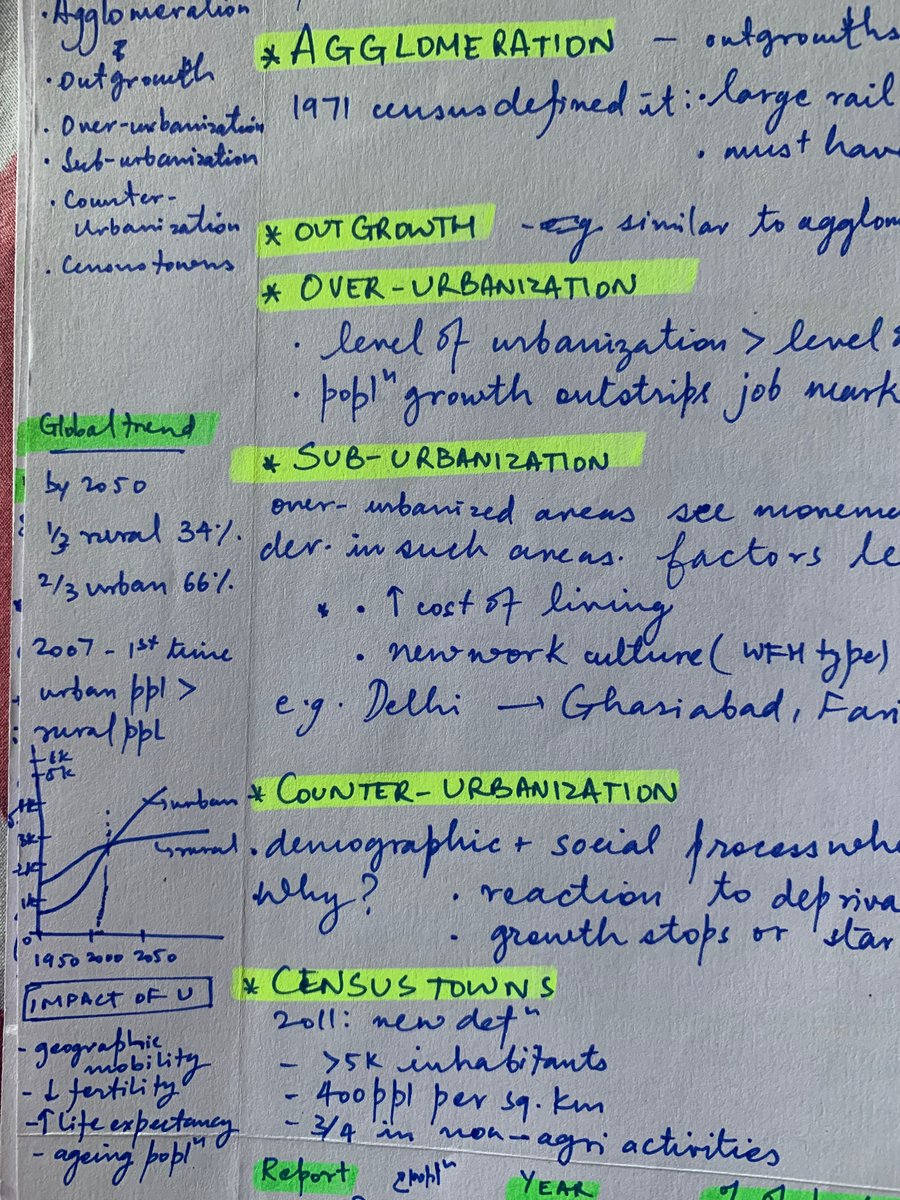 ·Agglomeration
&
·Outgrowth
· Over-urbanization
· Sub-urbanization
· Counter-
Urbanization
· Census towns
Global trend
by 2050
1/3 rural 34%.
2/3 urban 66%.
2007 - 1st time
urban ppl >
rural ppl
6K
5K
4K
3K
2K
1K
0
urban
rural
1950 2000 2050
IMPACT OF U
- geographic
mobility
- ↓ fertility
- ↑ life expectancy
- ageing poplⁿ
* AGGLOMERATION — outgrowths
1971 census defined it: · large rail
· must have
* OUTGROWTH - eg. similar to agglom
* OVER-URBANIZATION
· level of urbanization > level
· poplⁿ growth outstrips job mark
* SUB-URBANIZATION
over-urbanized areas see moveme
dev. in such areas. factors le
* · ↑ cost of living
· new work culture (WFH type)
e.g. Delhi → Ghasiabad, Fari
* COUNTER-URBANIZATION
· demographic + social process whe
Why? · reaction to depriva
· growth stops or star
* CENSUS TOWNS
2011: new defⁿ
- >5K inhabitants
- 400 ppl per sq. km
- 3/4 in non-agri activities
Report poplⁿ YEAR